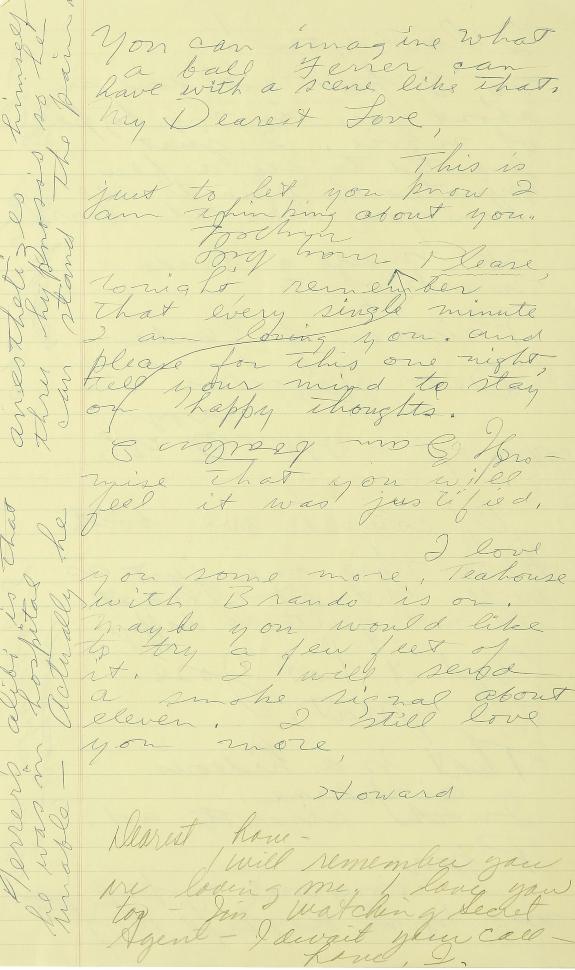 You can imagine what
a ball Ferrer can
have with a scene like that.
My Dearest Love,
This is
just to let you know I
am thinking about you.
my
Please,
tonight, remember
that every single minute
I am loving you. and
please for this one night,
tell your mind to stay
on happy thoughts.
I pro-
mise that you will
feel it was justified.
I love
you some more. Teahouse
with Brando is on.
Maybe you would like
to try a few feet of
it. I will send
a smoke signal about
eleven. I still love
you more,
Howard
Dearest love -
I will remember you
are loving me. I love you
too - I'm watching Secret
Agent - I await your call -
Love, J.
Ferrer's alibi is that
he was in hospital
unable — Actually he
anesthetizes himself
thru hypnosis so he
can stand the pain